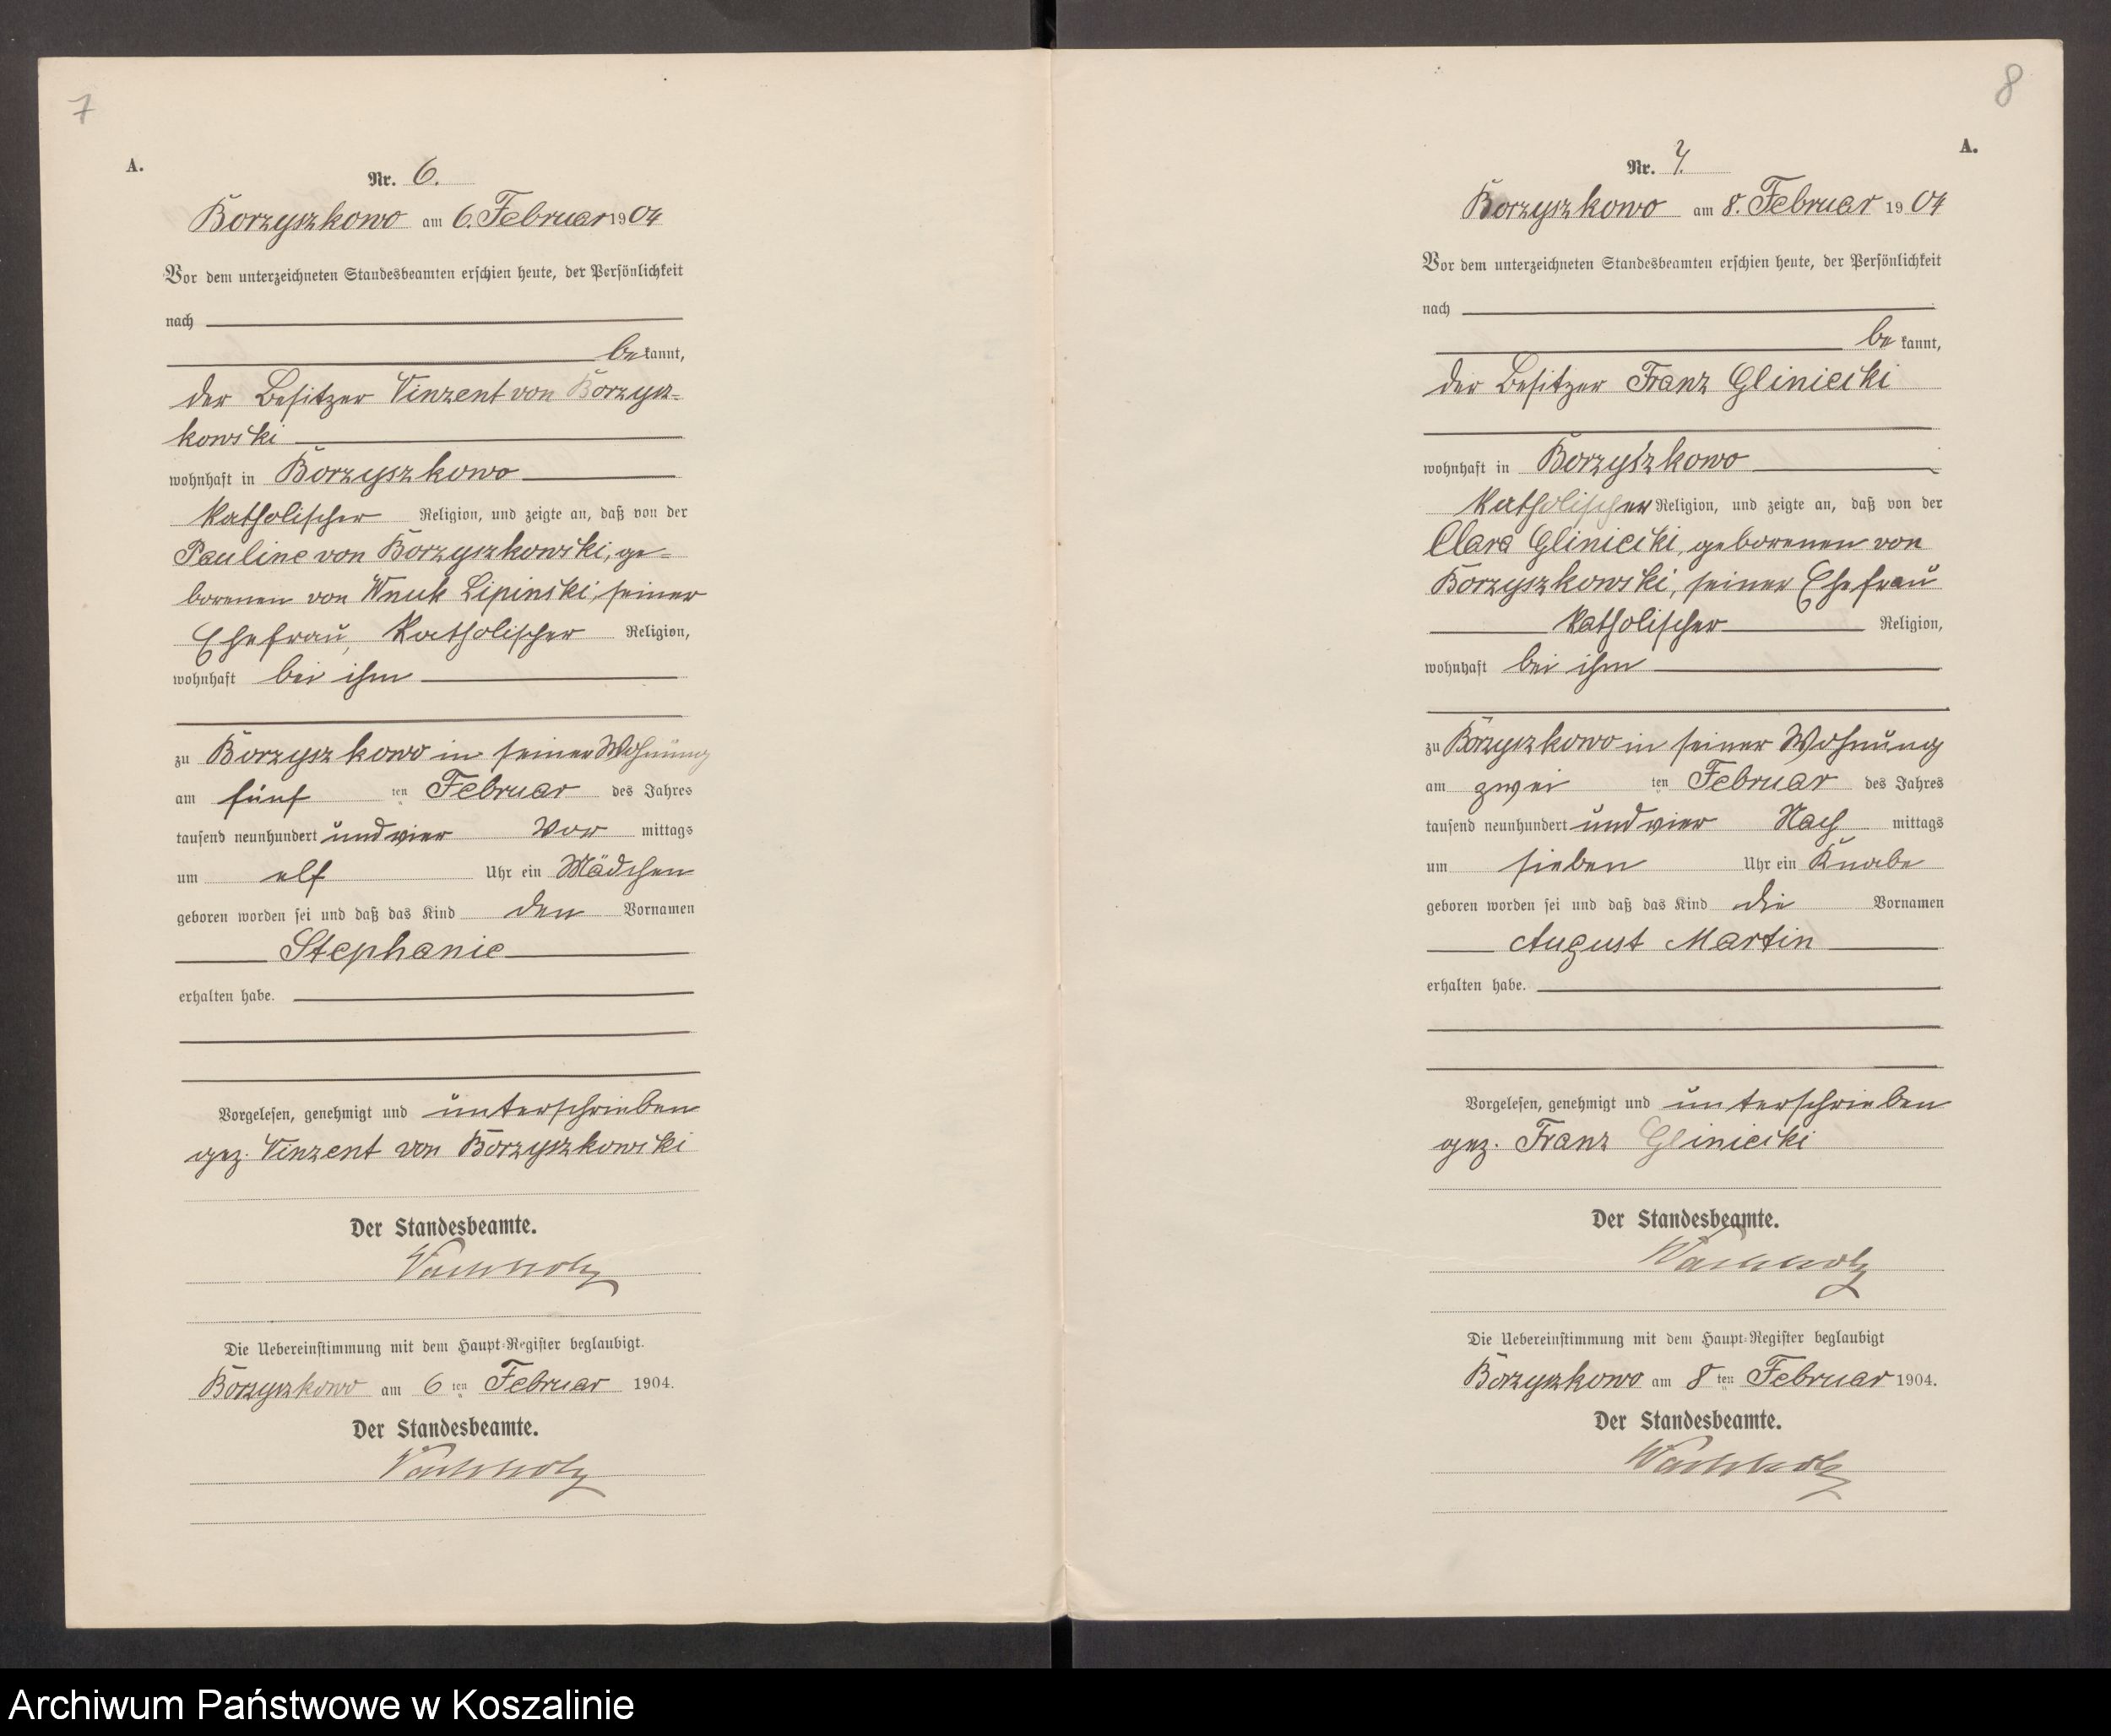 7
A.
Nr. 6.
Borzyszkowo am 6. Februar 1904
Vor dem unterzeichneten Standesbeamten erschien heute, der Persönlichkeit
nach
bekannt,
der Besitzer Vinzent von Borzysz=
kowski
wohnhaft in Borzyszkowo
katholischer Religion, und zeigte an, daß von der
Pauline von Borzyszkowski, ge=
borenen von Wnuk Lipinski, seiner
Ehefrau, katholischer Religion,
wohnhaft bei ihm
zu Borzyszkowo in seiner Wohnung
am fünf ten Februar des Jahres
tausend neunhundert und vier Vor mittags
um elf Uhr ein Mädchen
geboren worden sei und daß das Kind den Vornamen
Stephanie
erhalten habe.
Vorgelesen, genehmigt und unterschrieben
gez. Vinzent von Borzyszkowski
Der Standesbeamte.
Wachholz
Die Uebereinstimmung mit dem Haupt-Register beglaubigt.
Borzyszkowo am 6 ten Februar 1904.
Der Standesbeamte.
Wachholz
8
A.
Nr. 7.
Borzyszkowo am 8. Februar 1904
Vor dem unterzeichneten Standesbeamten erschien heute, der Persönlichkeit
nach
bekannt,
der Besitzer Franz Glinicki
wohnhaft in Borzyszkowo
katholischer Religion, und zeigte an, daß von der
Clara Glinicki, geborenen von
Borzyszkowski, seiner Ehefrau
katholischer Religion,
wohnhaft bei ihm
zu Borzyszkowo in seiner Wohnung
am zwei ten Februar des Jahres
tausend neunhundert und vier Nach mittags
um sieben Uhr ein Knabe
geboren worden sei und daß das Kind die Vornamen
August Martin
erhalten habe.
Vorgelesen, genehmigt und unterschrieben
gez. Franz Glinicki
Der Standesbeamte.
Wachholz
Die Uebereinstimmung mit dem Haupt-Register beglaubigt
Borzyszkowo am 8 ten Februar 1904.
Der Standesbeamte.
Wachholz
Archiwum Państwowe w Koszalinie